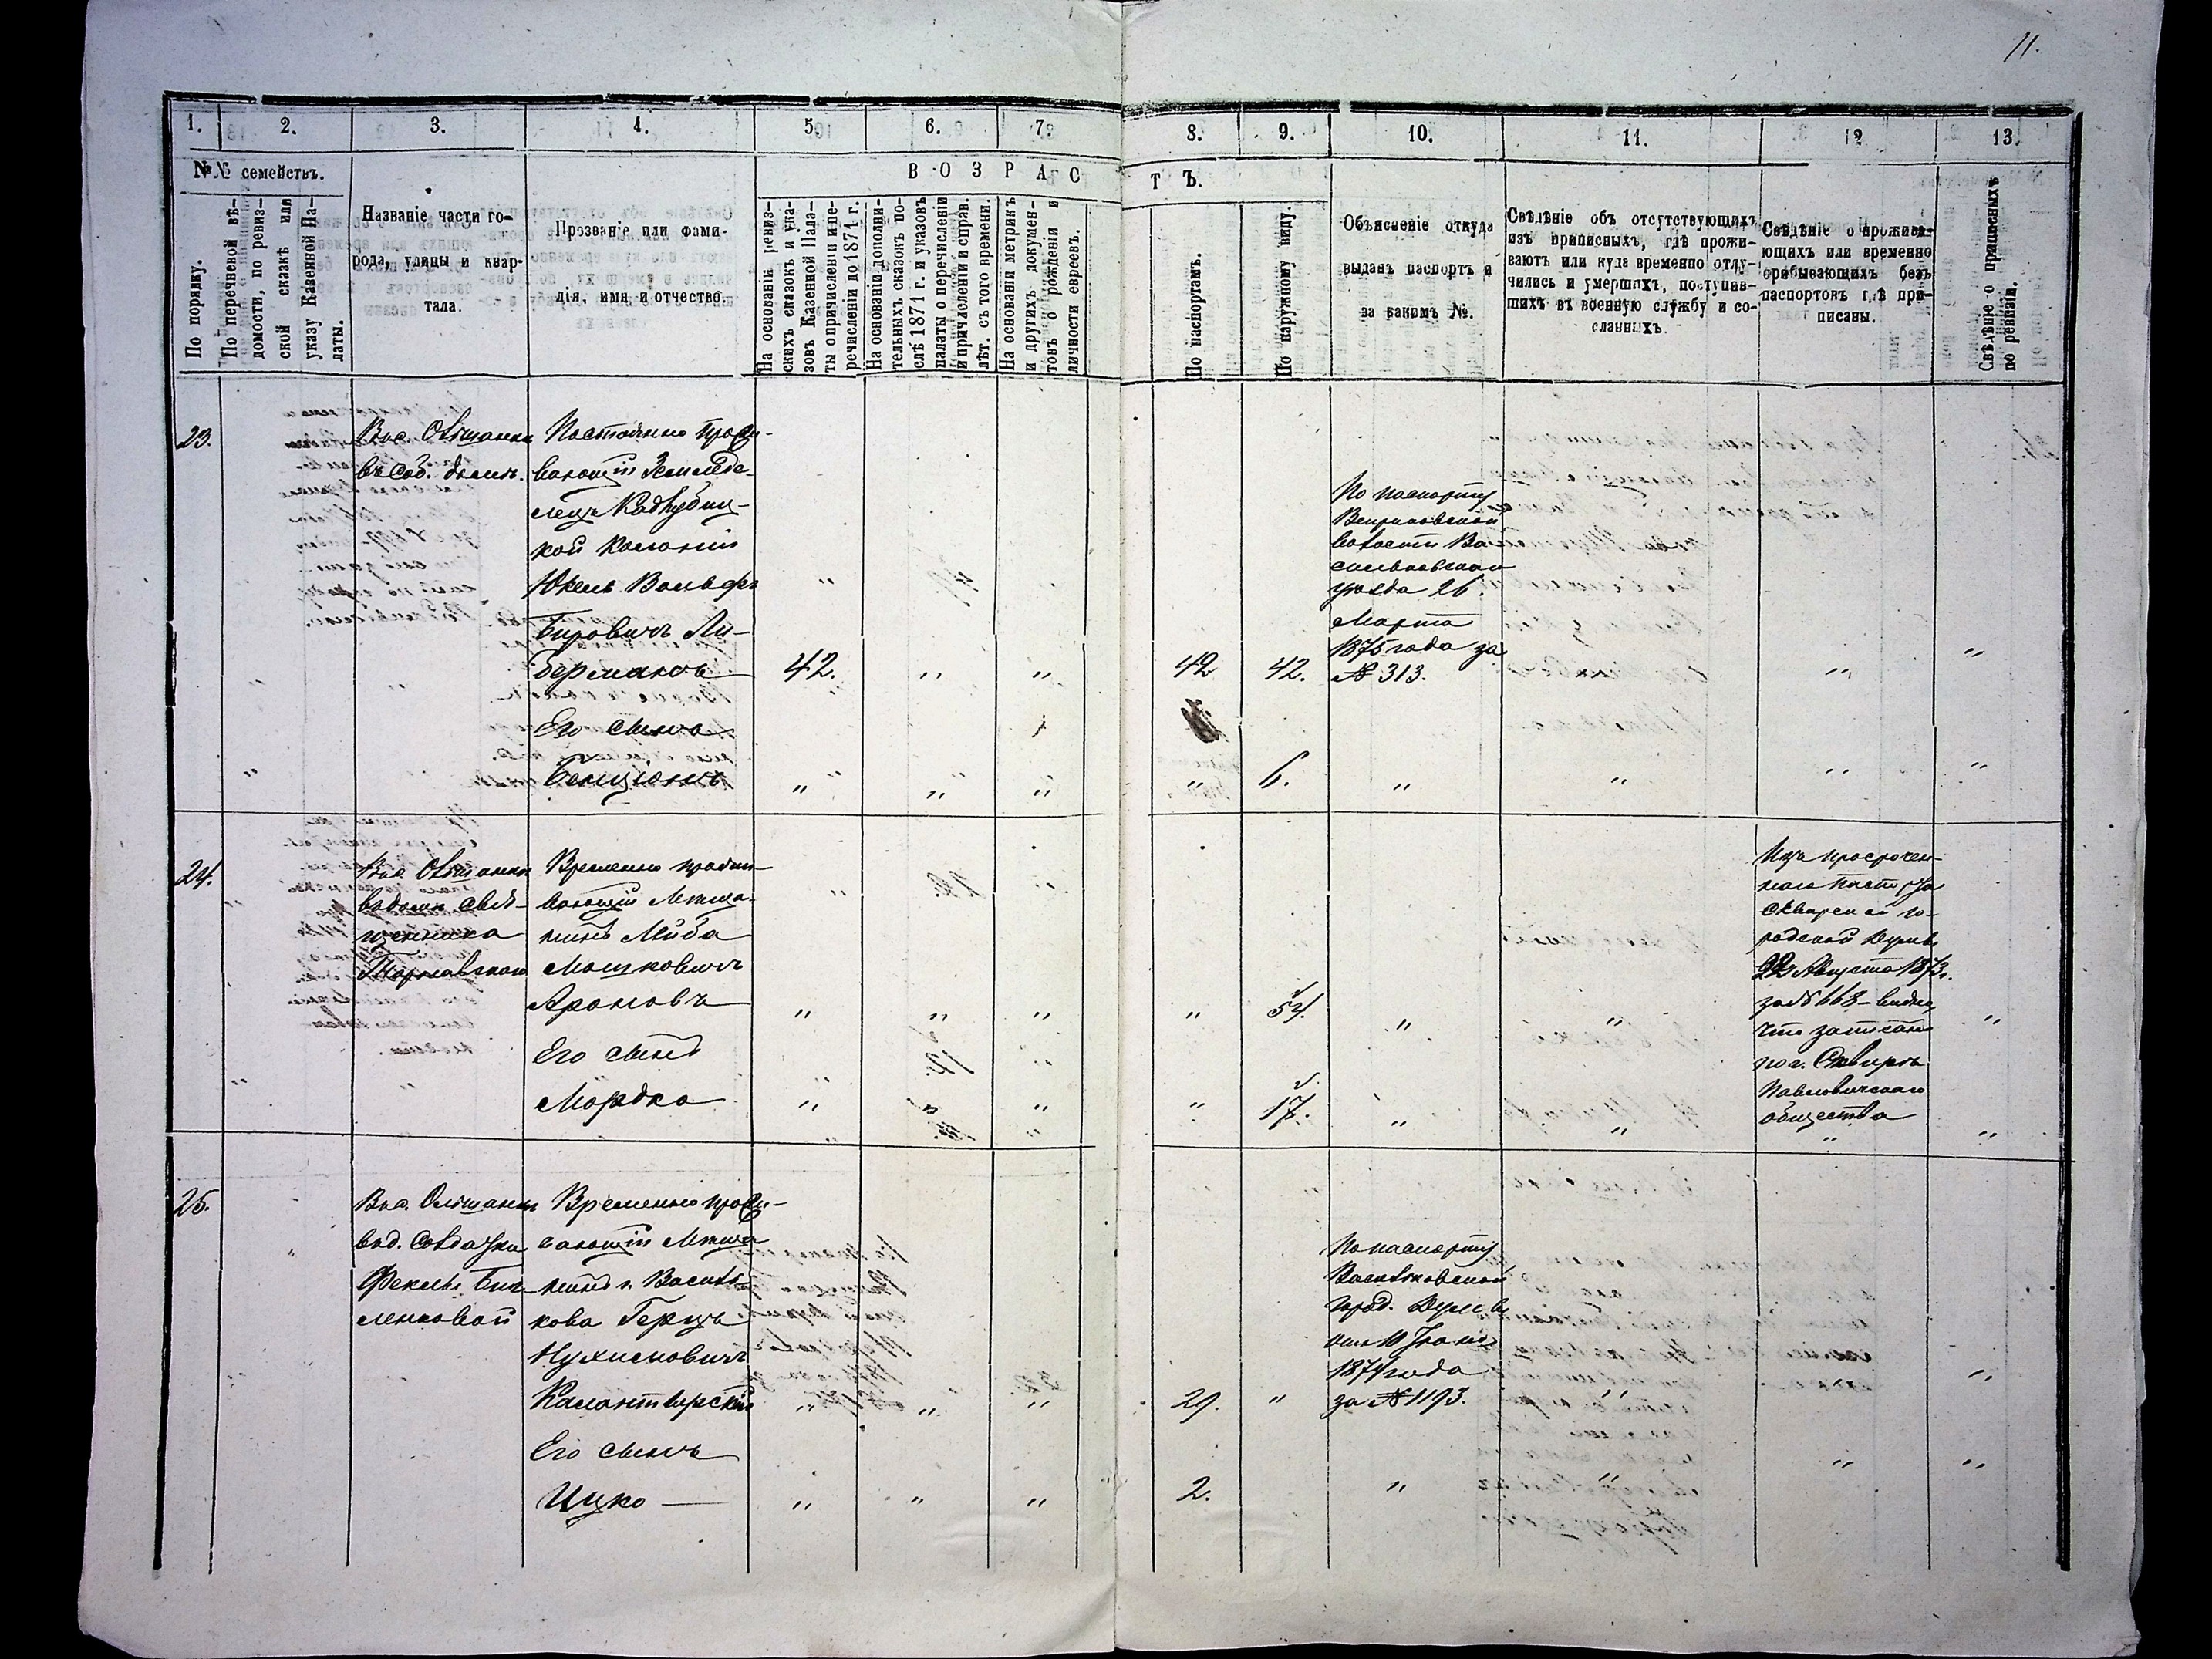 11.
1. 2. 3. 4. 5. 6. 7. 8. 9. 10. 11. 12 13.
№№ семействъ.
По порядку.
По перечневой вѣ-
домости, по ревиз-
ской сказкѣ или
указу Казенной Па-
латы.
Названіе части го-
рода, улицы и квар-
тала.
Прозваніе или фами-
лія, имя и отчество.
ВОЗРАСТЪ.
На основаніи ревиз-
скихъ сказокъ и ука-
зовъ Казенной Пала-
ты о причисленіи и пе-
речисленіи до 1871 г.
На основаніи дополни-
тельныхъ сказокъ по-
слѣ 1871 г. и указовъ
палаты о перечисленіи
и причисленіи и справ.
лѣт. съ того времени.
На основаніи метрикъ
и другихъ докумен-
товъ о рожденіи и
личности евреевъ.
По паспортамъ.
По наружному виду.
Объясненіе откуда
выданъ паспортъ и
за какимъ №.
Свѣдѣніе объ отсутствующихъ
изъ приписныхъ, гдѣ прожи-
ваютъ или куда временно отлу-
чились и умершихъ, поступив-
шихъ въ военную службу и со-
сланныхъ.
Свѣдѣніе о прожива-
ющихъ или временно
прибывающихъ безъ
паспортовъ гдѣ при-
писаны.
Свѣдѣніе о приписныхъ
по ревизіи.
23.
Въ с. Ольшанки
въ соб. домѣ.
Постоянно прожи-
вающій Земледѣ-
лецъ Кадлубиц-
кой Колоніи
Юкель Вольфъ
Бировичъ Ли-
берманъ 42. " " 42 42.
По паспорту
Веприковской
волости Ва-
сильковскаго
уѣзда 26
Марта
1875 года за
№ 313.
" "
Его сынъ
Бенціонъ " " " " 6. " " " "
24.
Въ с. Ольшанки
въ домѣ свя-
щенника
Тарнавскаго
Временно прожи-
вающій Мѣща-
нинъ Лейба
Мошковичъ
Ароновъ " " " " 54. " "
Его сынъ
Мордко " " " " 17. " "
Изъ просрочен-
наго паспорта
Сквирской го-
родской Думы
22 Августа 1873 г.
за № 668 – видно,
что записанъ
по г. Сквирѣ
Павловичскаго
общества
" " "
25.
Въ с. Ольшанки
въ д. Солдатки
Феклы
ленковой
Временно прожи-
вающій Мѣща
нинъ г. Василь-
кова Герцъ
Нухимовичъ
Калантырскій " " " 29. "
По паспорту
Васильковской
город. Думы
1874 года
за № 1193.
" "
Его сынъ
Ицко " " " 2. " " " "